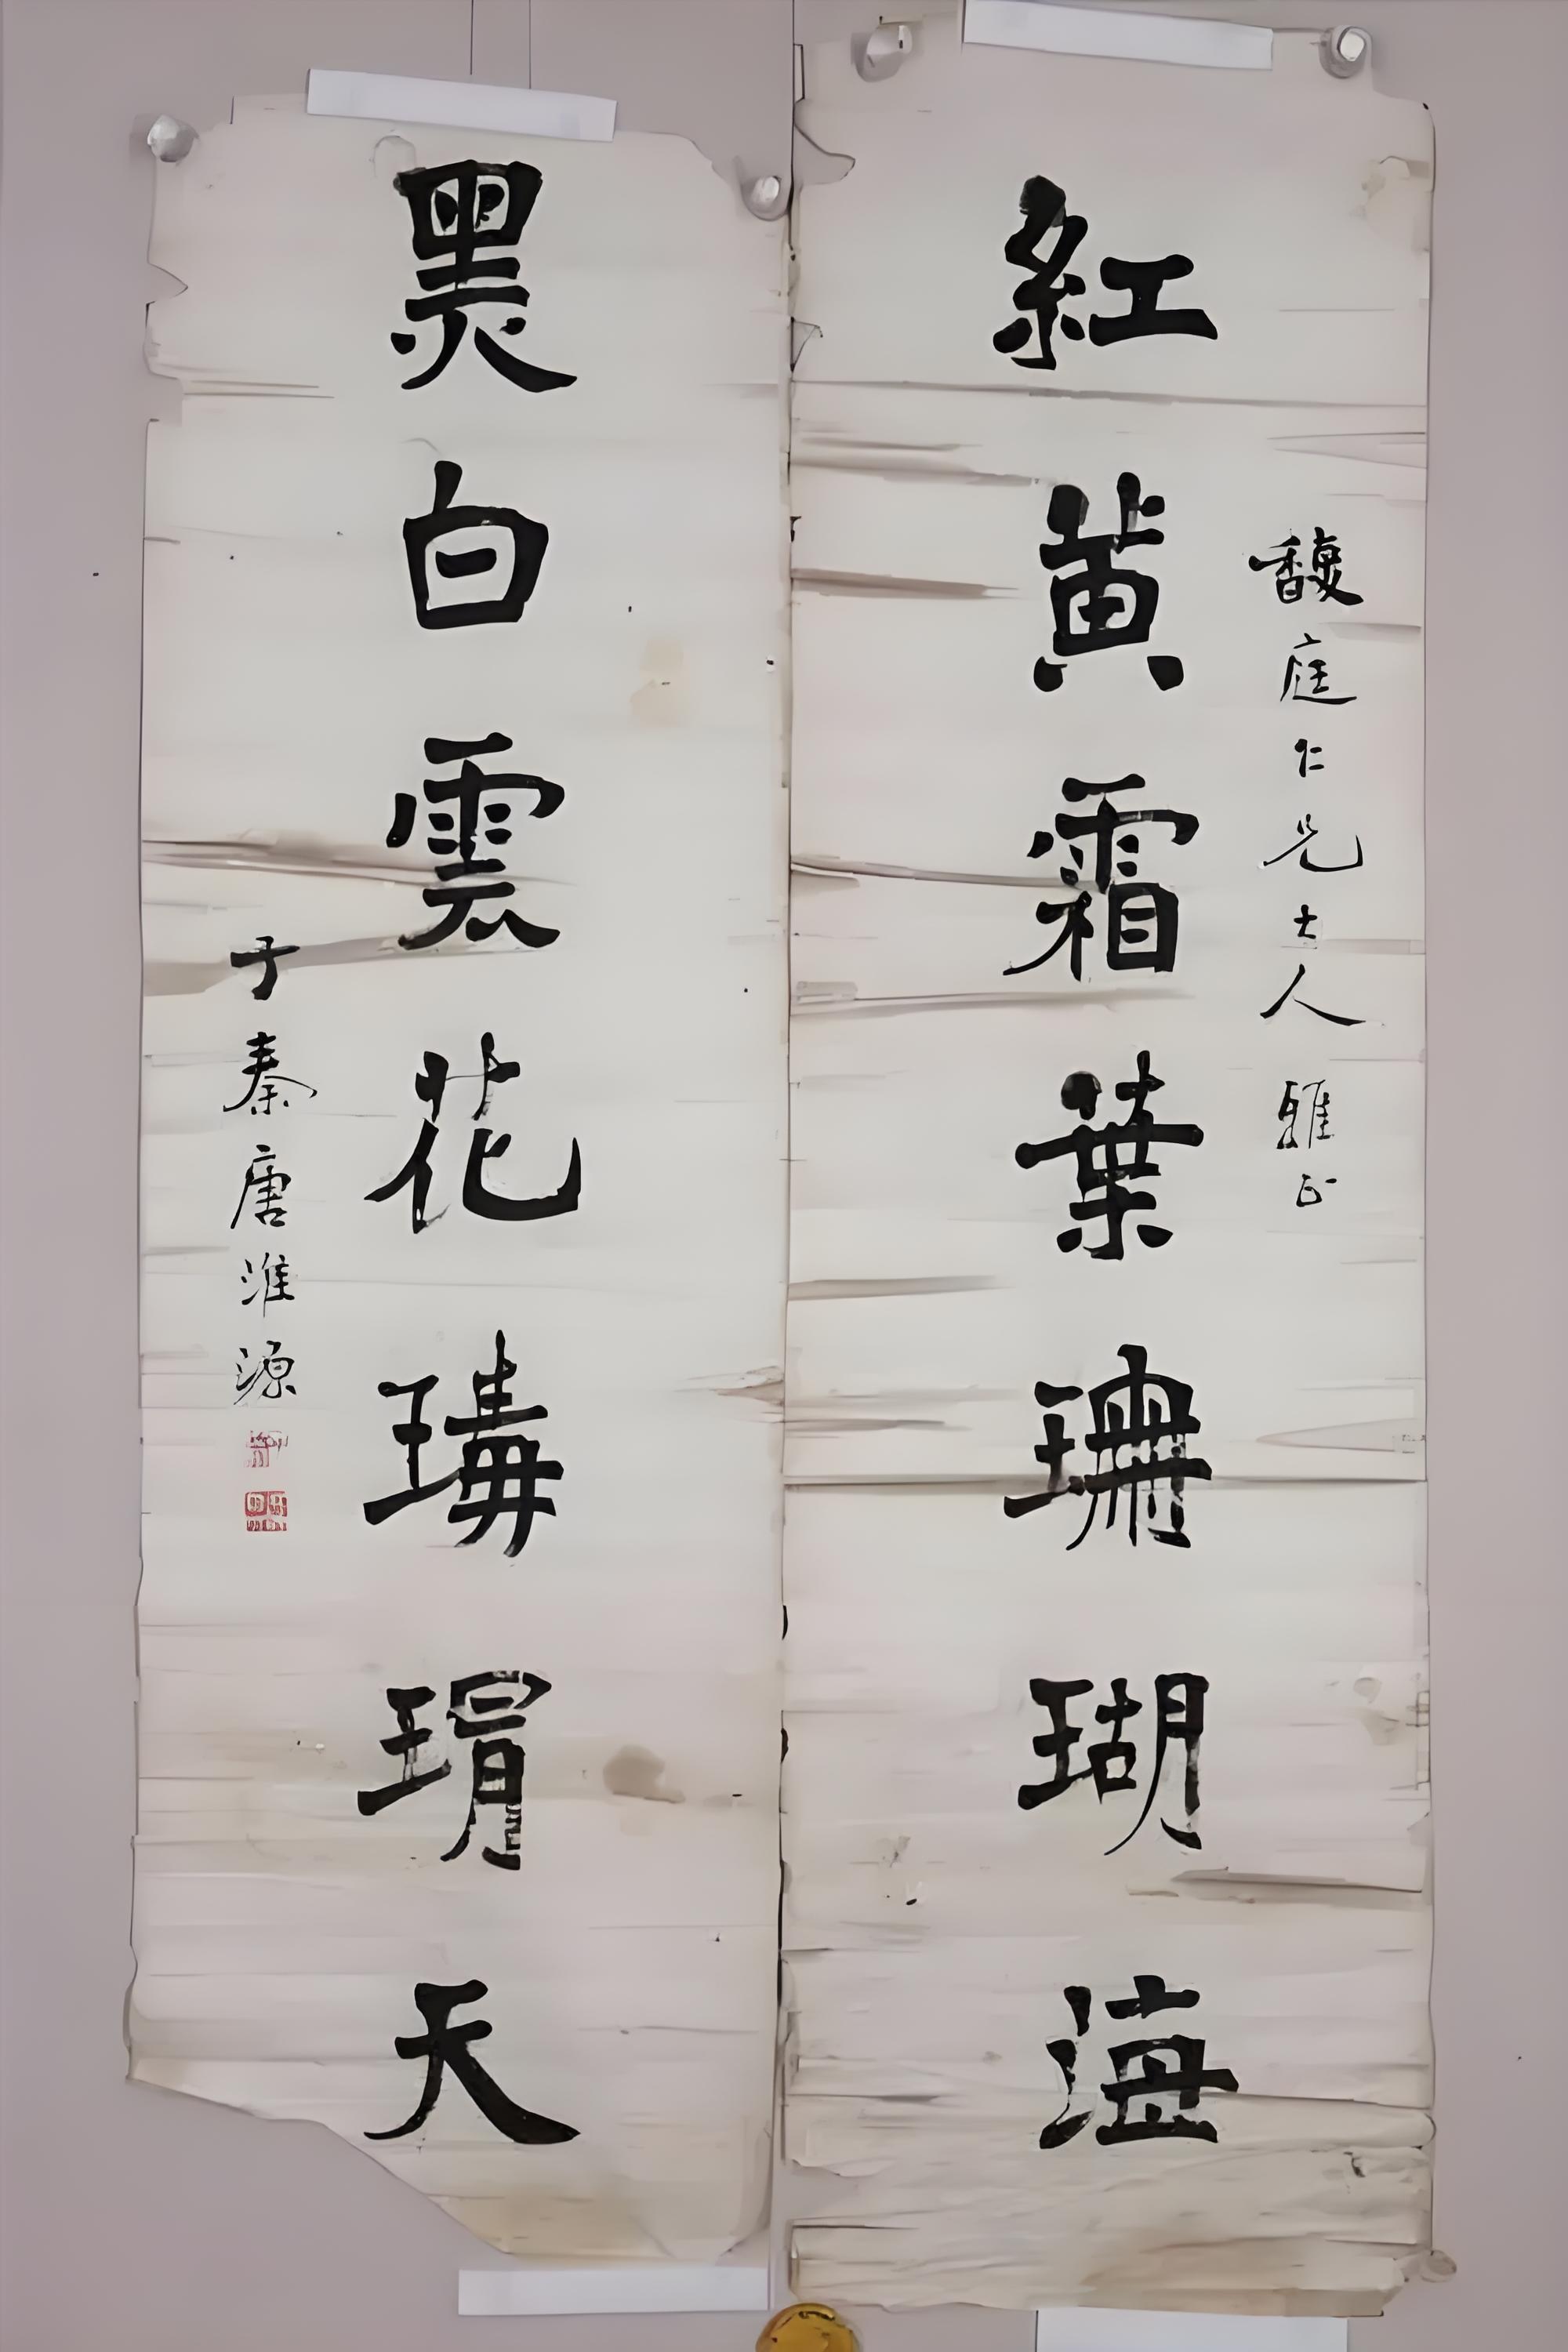 馥庭仁兄大人雅正
紅黃霜葉珊瑚海
黑白雲花瑇瑁天
子秦唐淮源